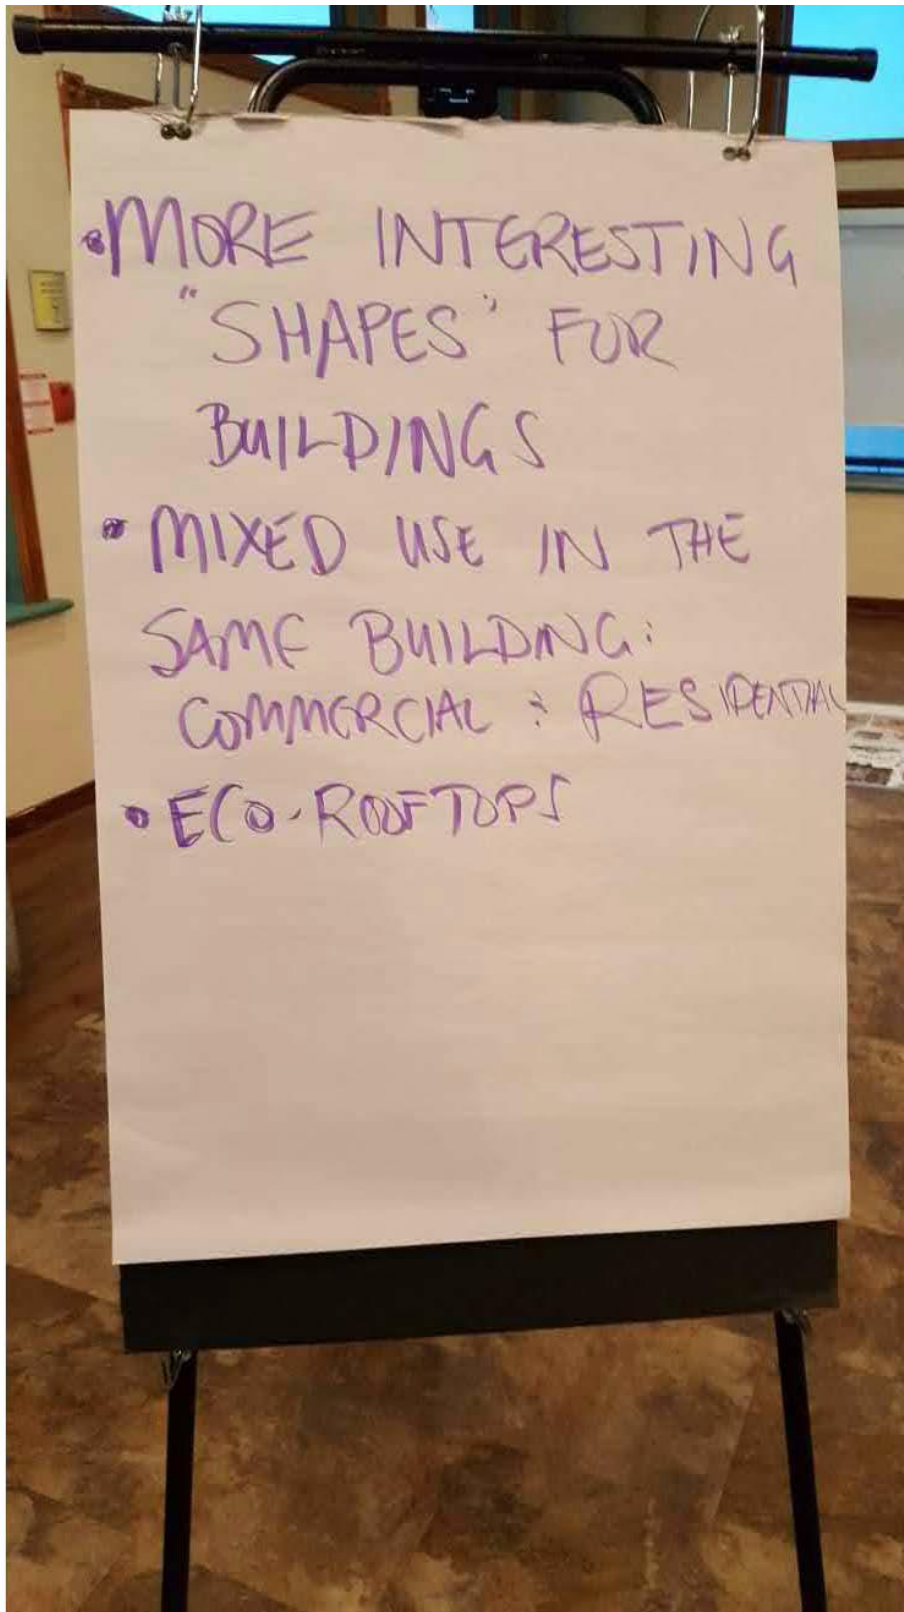 • MORE INTERESTING
"SHAPES" FOR
BUILDINGS
• MIXED USE IN THE
SAME BUILDING:
COMMERCIAL & RESIDENTIAL
• ECO-ROOFTOPS